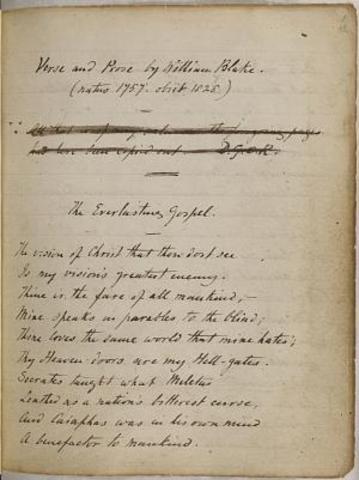 Verse and Prose by William Blake.
(natus 1757. obiit 1828.)
All that is of any value in the foregoing pages
has here been copied out. D.G.C.R.
The Everlasting Gospel.
The vision of Christ that thou dost see
Is my vision's greatest enemy.
Thine is the face of all mankind,—
Mine speaks in parables to the blind;
Thine loves the same world that mine hates;
Thy Heaven-doors are my Hell-gates.
Socrates taught what Meletus
Loathed as a nation's bitterest curse,
And Caiaphas was in his own mind
A benefactor to mankind.